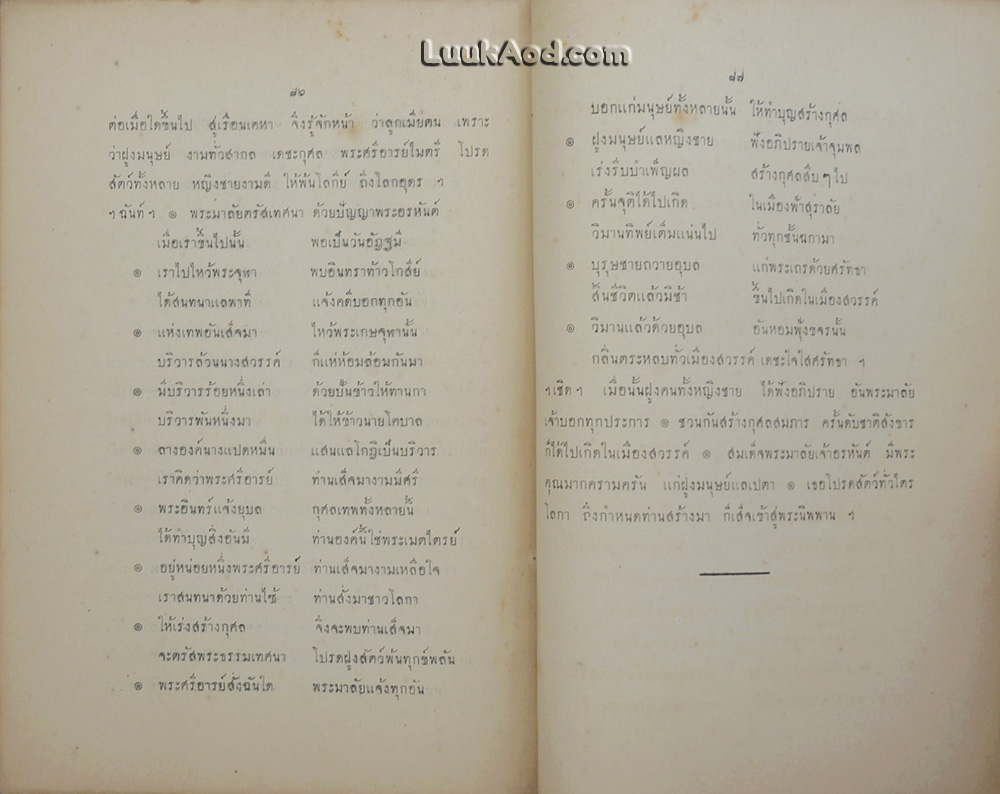 LuukAod.com
๘๖
ต่อเมื่อใดขึ้นไป สู่เรือนเคหา จึงรู้จักหน้า ว่าลูกเมียตน เพราะ
ว่าฝูงมนุษย์ งามทั่วสากล เดชะกุศล พระศรีอารย์ไมตรี โปรด
สัตว์ทั้งหลาย หญิงชายงามดี ให้พ้นโลกีย์ ถึงโลกอุดร ฯ
ฯ ฉันท์ ฯ ๏ พระมาลัยตรัสเทศนา ด้วยปัญญาพระอรหันต์
เมื่อเราขึ้นไปนั้น พอเป็นวันอัฏฐมี
๏ เราไปไหว้พระจุฬา พบอินทราท้าวโกสีย์
ได้สนทนาแลพาที แจ้งคดีบอกทุกอัน
๏ แห่งเทพอันเสด็จมา ไหว้พระเกษจุฬานั้น
บริวารล้วนนางสวรรค์ ก็แห่ห้อมล้อมกันมา
๏ มีบริวารร้อยหนึ่งเล่า ด้วยปั้นข้าวให้ทานกา
บริวารพันหนึ่งมา ได้ให้ข้าวนายโคบาล
๏ ลางองค์นางแปดหมื่น แสนแลโกฏิเป็นบริวาร
เราคิดว่าพระศรีอารย์ ท่านเสด็จมางามมีศรี
๏ พระอินทร์แจ้งยุบล กุศลเทพทั้งหลายนี้
ได้ทำบุญสิ่งอันมี ท่านองค์นี้ใช่พระเมตไตรย์
๏ อยู่หน่อยหนึ่งพระศรีอารย์ ท่านเสด็จมางามเหลือใจ
เราสนทนาด้วยท่านไซ้ ท่านสั่งมาชาวโลกา
๏ ให้เร่งสร้างกุศล จึงจะพบท่านเสด็จมา
จะตรัสพระธรรมเทศนา โปรดฝูงสัตว์พ้นทุกข์พลัน
๏ พระศรีอารย์สั่งฉันใด พระมาลัยแจ้งทุกอัน
๘๗
บอกแก่มนุษย์ทั้งหลายนั้น ให้ทำบุญสร้างกุศล
๏ ฝูงมนุษย์แลหญิงชาย ฟังอภิปรายเจ้าจุมพล
เร่งรีบบำเพ็ญผล สร้างกุศลสืบๆ ไป
๏ ครั้นจุติได้ไปเกิด ในเมืองฟ้าสุราลัย
วิมานทิพย์เต็มแน่นไป ทั่วทุกชั้นฉกามา
๏ บุรุษชายถวายอุบล แก่พระเถรด้วยศรัทธา
สิ้นชีวิตแล้วมิช้า ขึ้นไปเกิดในเมืองสวรรค์
๏ วิมานแล้วด้วยอุบล อันหอมฟุ้งขจรนั้น
กลิ่นตระหลบทั่วเมืองสวรรค์ เดชะใจใสศรัทธา ฯ
ฯ เชิด ฯ เมื่อนั้นฝูงคนทั้งหญิงชาย ได้ฟังอภิปราย อันพระมาลัย
เจ้าบอกทุกประการ ๏ ชวนกันสร้างกุศลสมภาร ครั้นดับชาติสังขาร
ก็ได้ไปเกิดในเมืองสวรรค์ ๏ สมเด็จพระมาลัยเจ้าอรหันต์ มีพระ
คุณมากครามครัน แก่ฝูงมนุษย์แลเปตา ๏ เธอโปรดสัตว์ทั่วไตร
โลกา ถึงกำหนดท่านสร้างมา ก็เสด็จเข้าสู่พระนิพพาน ฯ